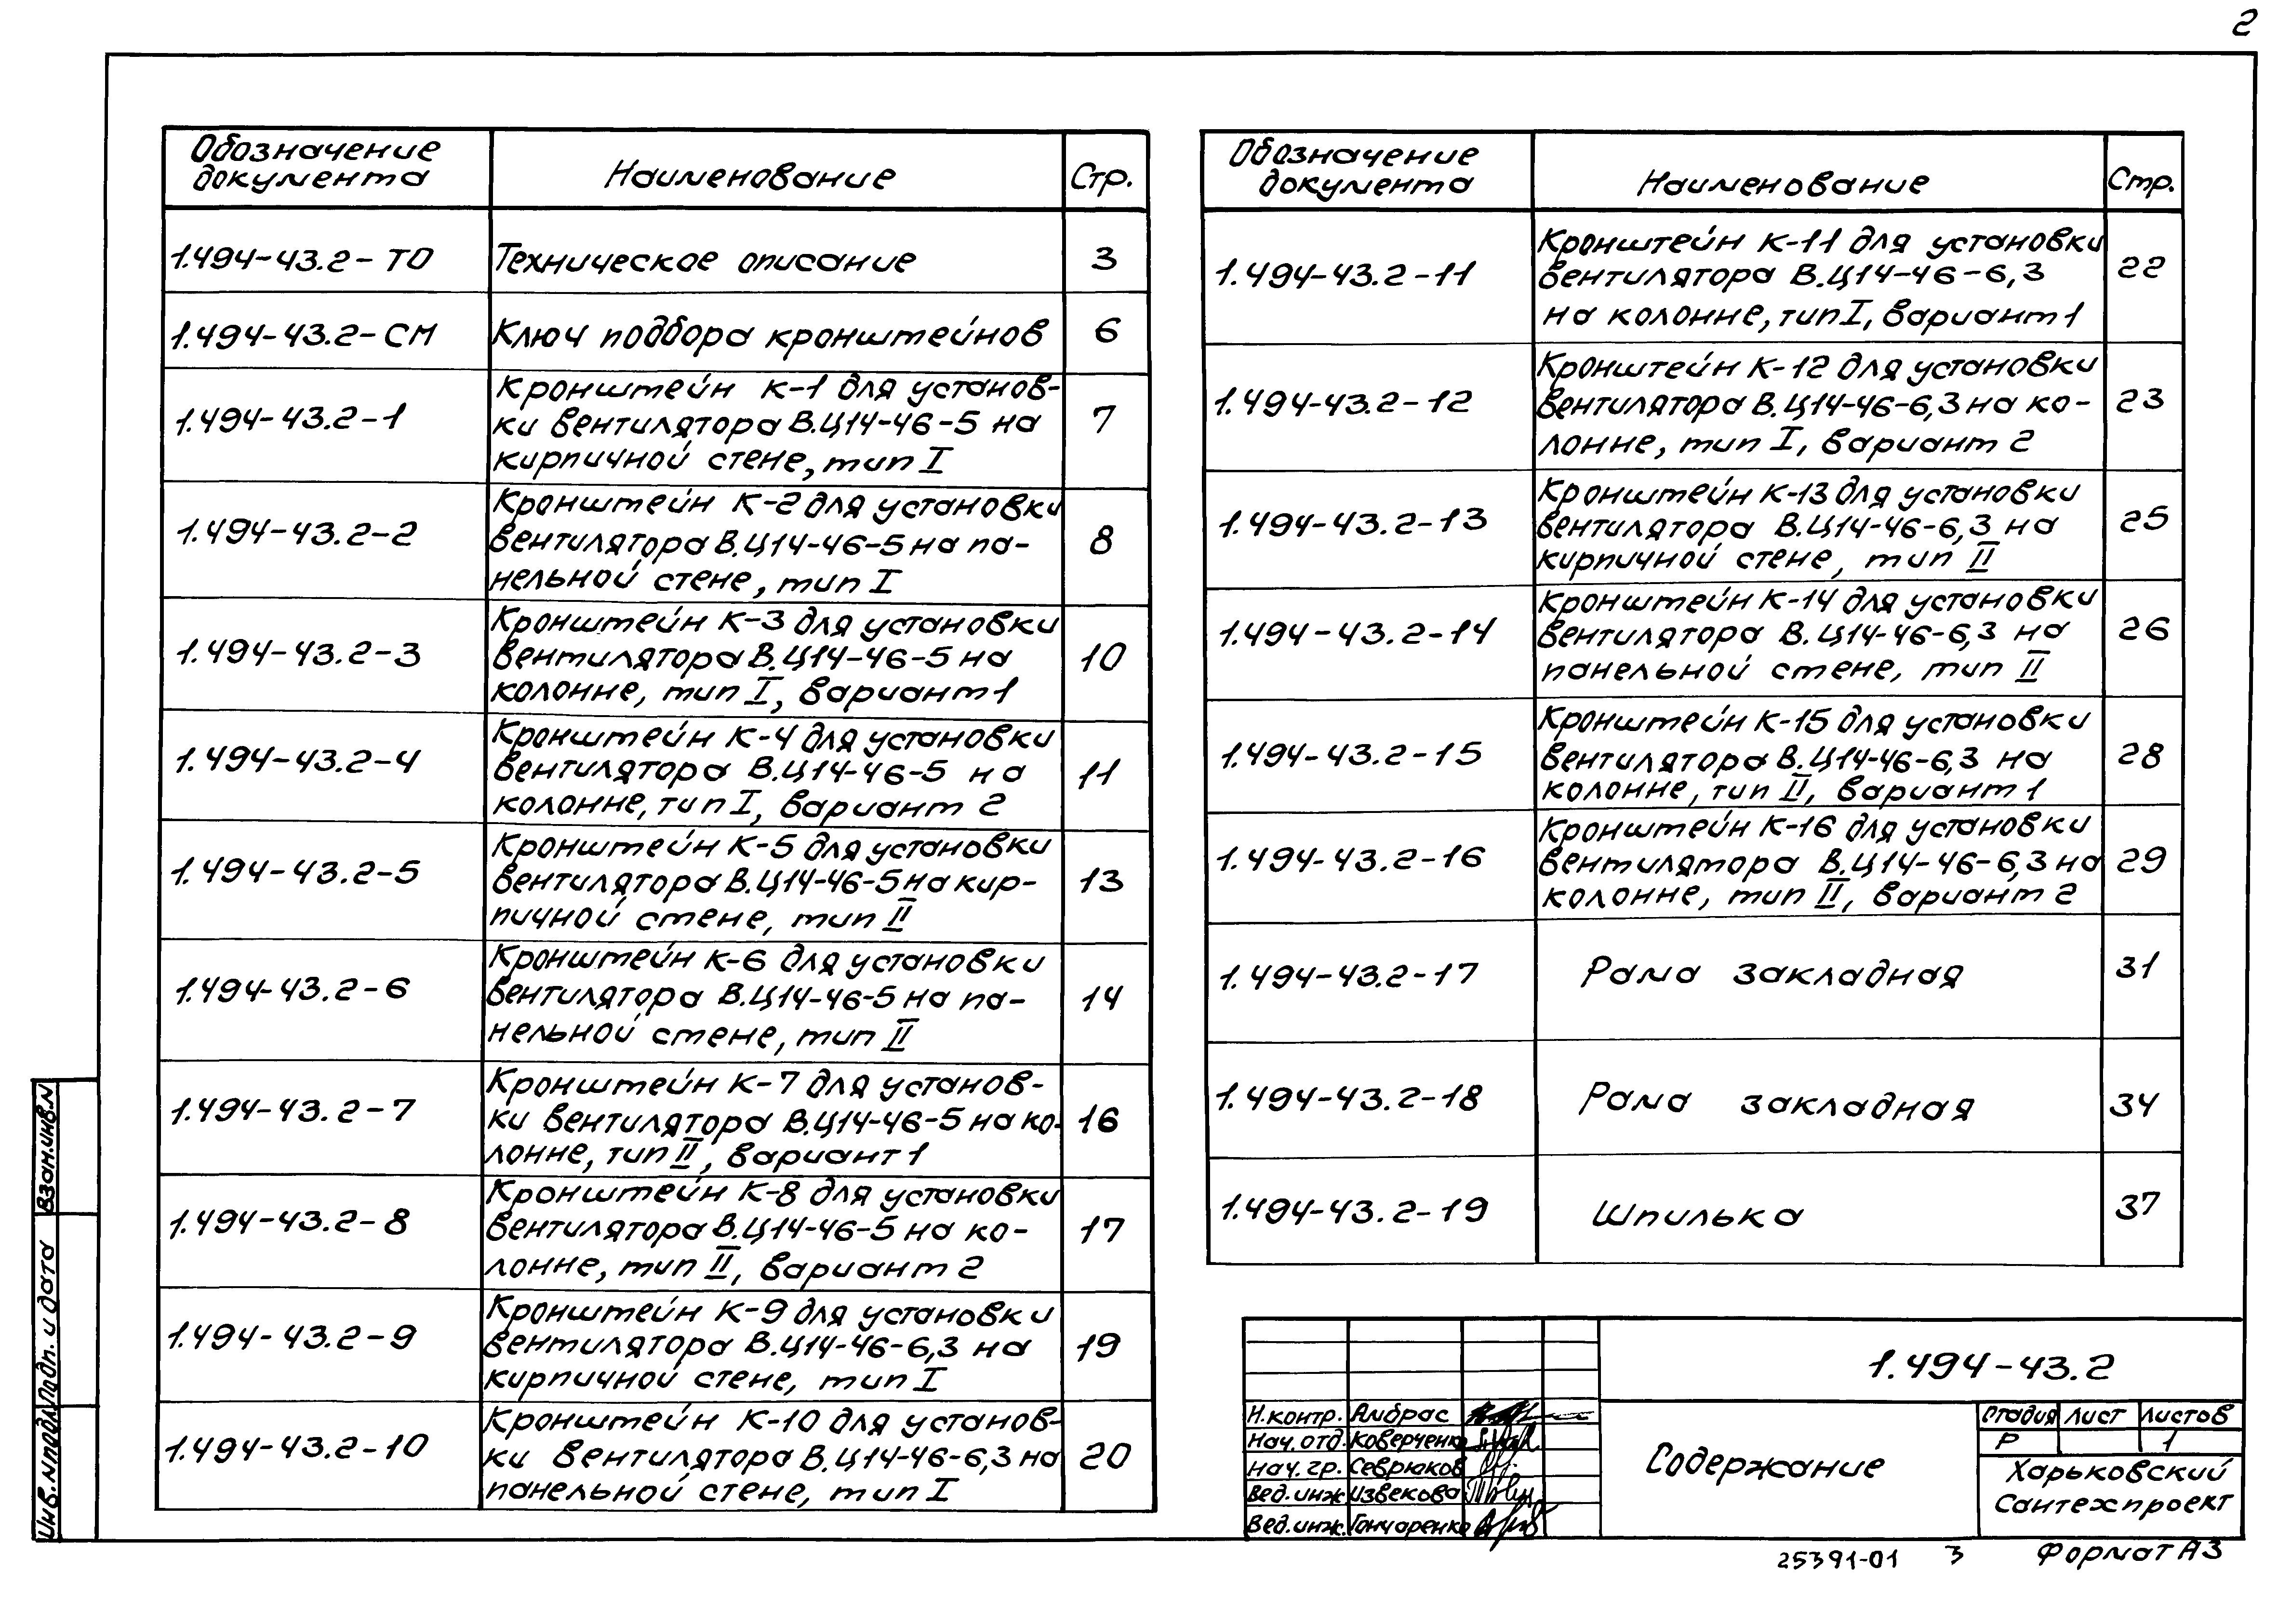 2
Обозначение
документа
Наименование
Стр.
1.494-43.2-ТО
Техническое описание
3
1.494-43.2-СМ
Ключ подбора кронштейнов
6
1.494-43.2-1
Кронштейн К-1 для установ-
ки вентилятора В.Ц14-46-5 на
кирпичной стене, тип I
7
1.494-43.2-2
Кронштейн К-2 для установки
вентилятора В.Ц14-46-5 на па-
нельной стене, тип I
8
1.494-43.2-3
Кронштейн К-3 для установки
вентилятора В.Ц14-46-5 на
колонне, тип I, вариант 1
10
1.494-43.2-4
Кронштейн К-4 для установки
вентилятора В.Ц14-46-5 на
колонне, тип I, вариант 2
11
1.494-43.2-5
Кронштейн К-5 для установки
вентилятора В.Ц14-46-5 на кир-
пичной стене, тип II
13
1.494-43.2-6
Кронштейн К-6 для установки
вентилятора В.Ц14-46-5 на па-
нельной стене, тип II
14
1.494-43.2-7
Кронштейн К-7 для установ-
ки вентилятора В.Ц14-46-5 на ко-
лонне, тип II, вариант 1
16
1.494-43.2-8
Кронштейн К-8 для установки
вентилятора В.Ц14-46-5 на ко-
лонне, тип II, вариант 2
17
1.494-43.2-9
Кронштейн К-9 для установки
вентилятора В.Ц14-46-6,3 на
кирпичной стене, тип I
19
1.494-43.2-10
Кронштейн К-10 для установ-
ки вентилятора В.Ц14-46-6,3 на
панельной стене, тип I
20
Обозначение
документа
Наименование
Стр.
1.494-43.2-11
Кронштейн К-11 для установки
вентилятора В.Ц14-46-6,3
на колонне, тип I, вариант 1
22
1.494-43.2-12
Кронштейн К-12 для установки
вентилятора В.Ц14-46-6,3 на ко-
лонне, тип I, вариант 2
23
1.494-43.2-13
Кронштейн К-13 для установки
вентилятора В.Ц14-46-6,3 на
кирпичной стене, тип II
25
1.494-43.2-14
Кронштейн К-14 для установки
вентилятора В.Ц14-46-6,3 на
панельной стене, тип II
26
1.494-43.2-15
Кронштейн К-15 для установки
вентилятора В.Ц14-46-6,3 на
колонне, тип II, вариант 1
28
1.494-43.2-16
Кронштейн К-16 для установки
вентилятора В.Ц14-46-6,3 на
колонне, тип II, вариант 2
29
1.494-43.2-17
Рама закладная
31
1.494-43.2-18
Рама закладная
34
1.494-43.2-19
Шпилька
37
Взам.инв.N
Подп. и дата
Инв.N подл.
1.494-43.2
Н.контр. Амбрас
Нач.отд. Коверченко
Нач.гр. Севрюков
Вед.инж. Извекова
Вед.инж. Гончаренко
Содержание
Стадия Лист Листов
Р 1
Харьковский
Сантехпроект
25391-01 3 Формат А3